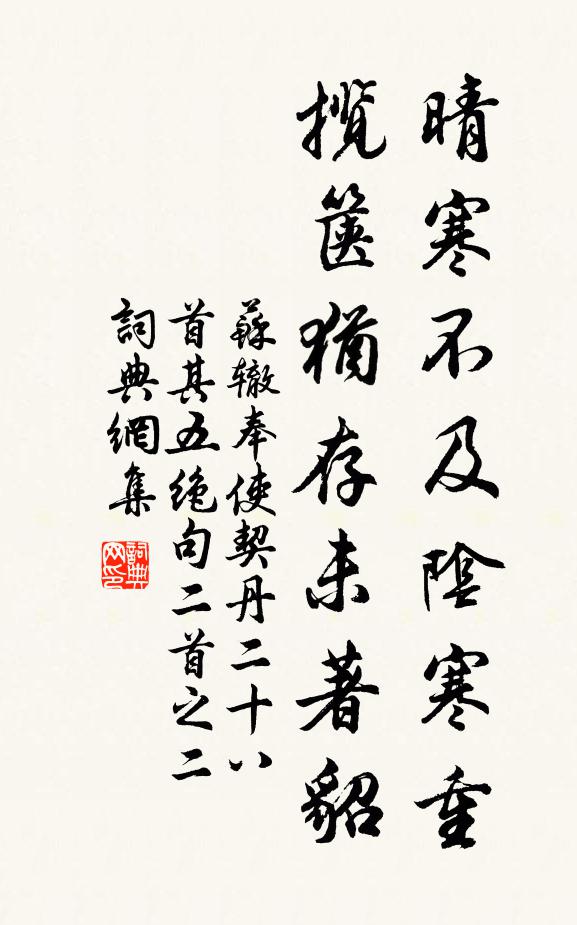 晴寒不及陰寒重
攬篋猶存未著貂
蘇轍奉使契丹二十八
首其五絕句二首之二
詞典網集
詞典网印